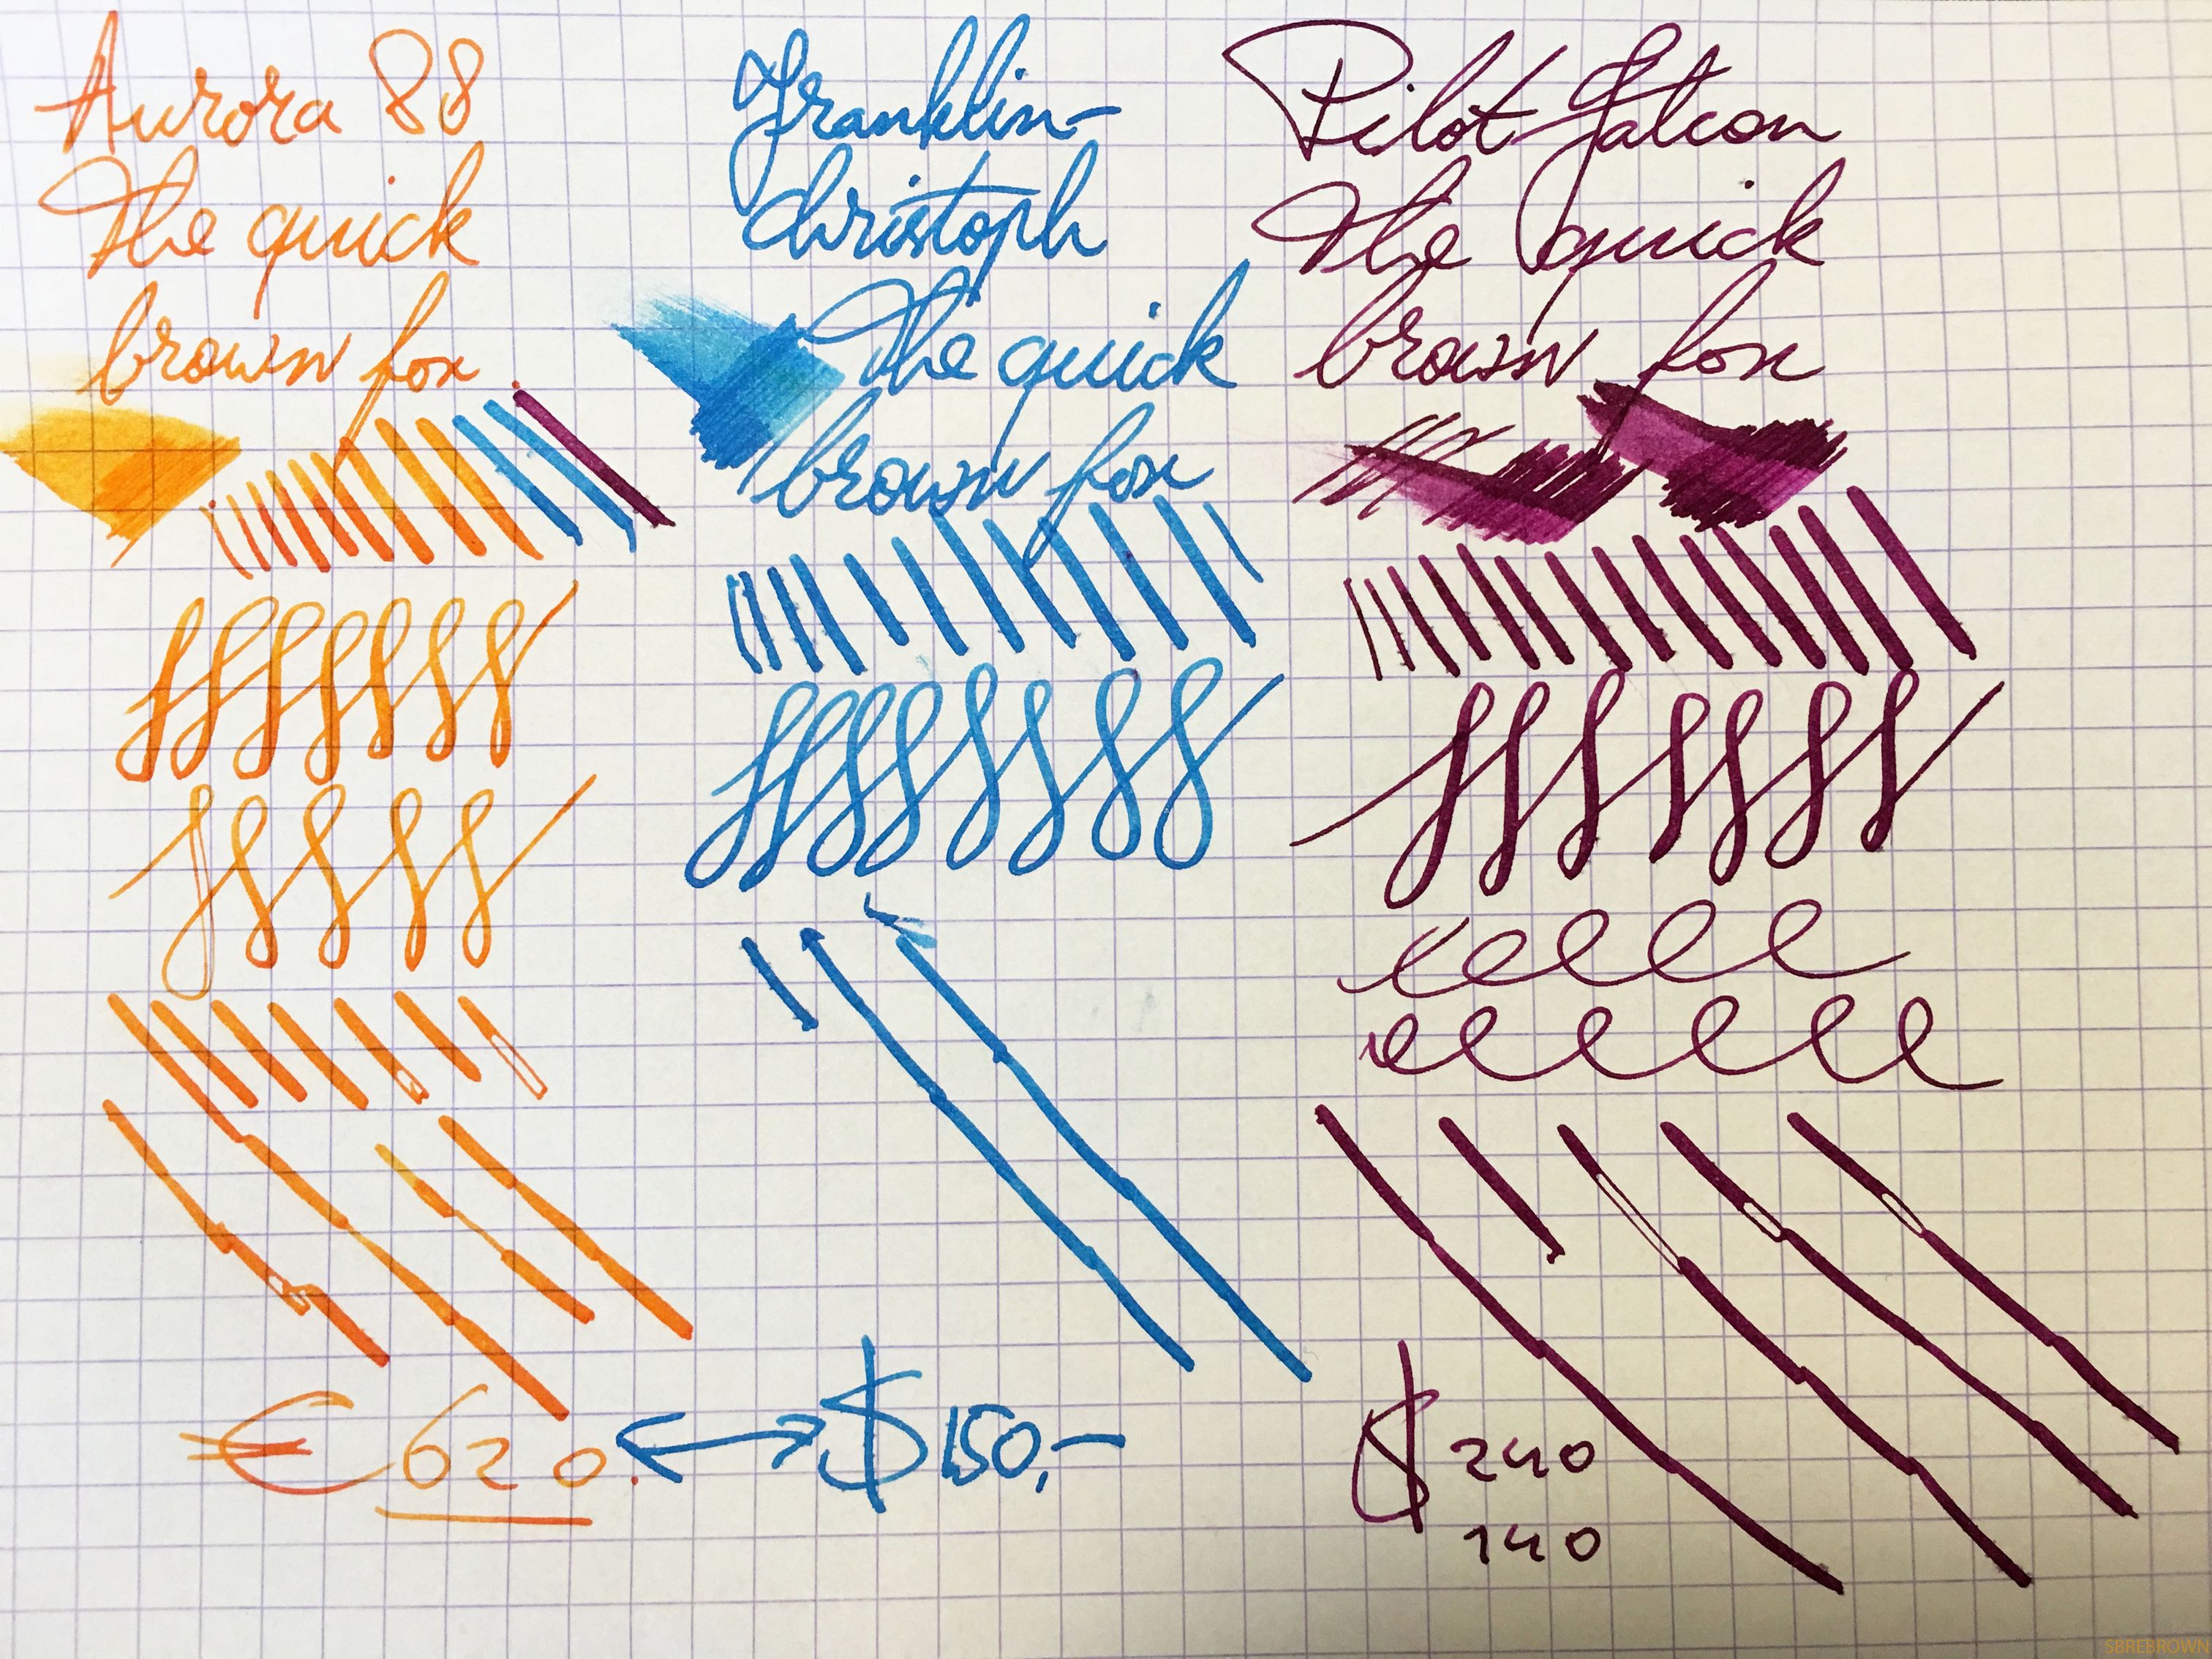 Aurora 88
The quick
brown fox
€ 620
Franklin-
Christoph
The quick
brown fox
$150,-
Pilot Falcon
The quick
brown fox
$ 240
140
SBREBROWN